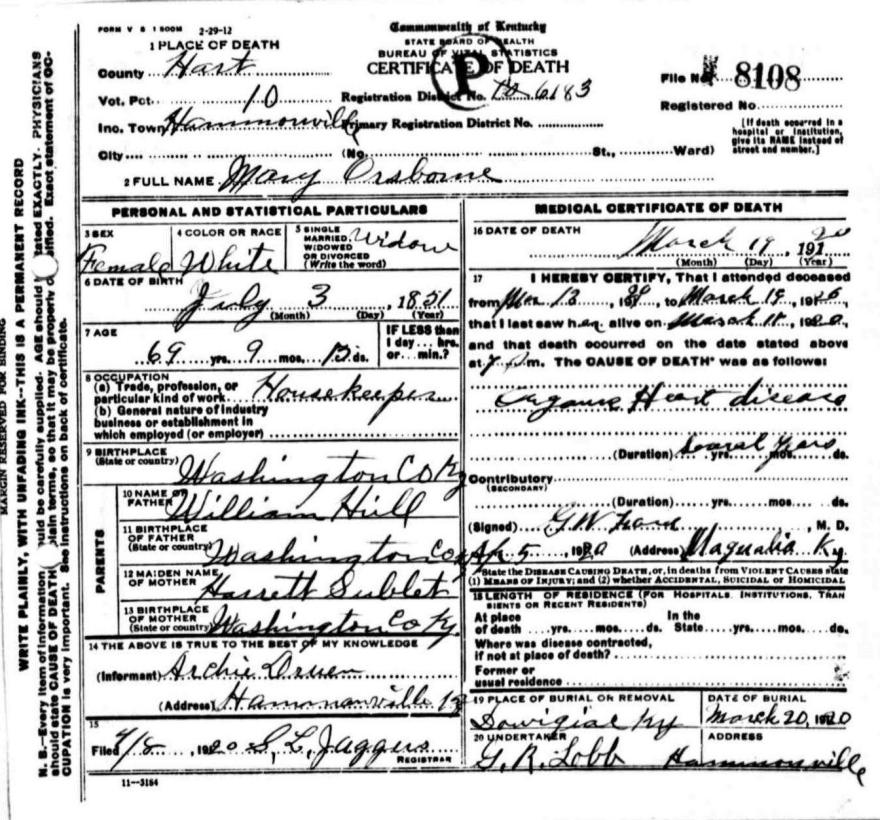 FORM V S 1 500M 2-29-12
Commonwealth of Kentucky
STATE BOARD OF HEALTH
BUREAU OF VITAL STATISTICS
CERTIFICATE OF DEATH
P
1 PLACE OF DEATH
County Hart
Vot. Pct. 10
Inc. Town Hammonville
City (No. St., Ward)
Registration District No. 6183
Primary Registration District No.
File No. 8108
Registered No.
[If death occurred in a hospital or institution, give its NAME instead of street and number.]
2 FULL NAME Mary Orsborne
PERSONAL AND STATISTICAL PARTICULARS
3 SEX Female
4 COLOR OR RACE White
5 SINGLE MARRIED, WIDOWED OR DIVORCED (Write the word) Widow
6 DATE OF BIRTH
July 3, 1851
(Month) (Day) (Year)
7 AGE
69 yrs. 9 mos. 15 ds.
IF LESS than 1 day hrs. or min.?
8 OCCUPATION
(a) Trade, profession, or particular kind of work Housekeeper
(b) General nature of industry business or establishment in which employed (or employer)
9 BIRTHPLACE (State or country) Washington Co Ky
PARENTS
10 NAME OF FATHER William Hill
11 BIRTHPLACE OF FATHER (State or country) Washington Co Ky
12 MAIDEN NAME OF MOTHER Harrett Sublet
13 BIRTHPLACE OF MOTHER (State or country) Washington Co Ky.
14 THE ABOVE IS TRUE TO THE BEST OF MY KNOWLEDGE
(Informant) Archie Druen
(Address) Hammonville Ky
15
Filed 4/8, 1920 S. L. Jaggers
REGISTRAR
11-3164
MEDICAL CERTIFICATE OF DEATH
16 DATE OF DEATH
March 19, 1920
(Month) (Day) (Year)
17 I HEREBY CERTIFY, That I attended deceased
from Mar 13, to March 19, 1920,
that I last saw her alive on March 18, 1920,
and that death occurred on the date stated above
at 7 p.m. The CAUSE OF DEATH* was as follows:
Organic Heart disease
(Duration) several years yrs. mos. ds.
Contributory (SECONDARY)
(Duration) yrs. mos. ds.
(Signed) G W, M. D.
Apr 5, 1920 (Address) Magnolia Ky.
*State the DISEASE CAUSING DEATH, or, in deaths from VIOLENT CAUSES state
(1) MEANS OF INJURY; and (2) whether ACCIDENTAL, SUICIDAL or HOMICIDAL
18 LENGTH OF RESIDENCE (FOR HOSPITALS, INSTITUTIONS, TRANSIENTS OR RECENT RESIDENTS)
At place of death yrs. mos. ds. In the State yrs. mos. ds.
Where was disease contracted, if not at place of death?
Former or usual residence
19 PLACE OF BURIAL OR REMOVAL
Ky
DATE OF BURIAL
March 20, 1920
20 UNDERTAKER
G. R. Lobb
ADDRESS
Hammonville
MARGIN RESERVED FOR BINDING
WRITE PLAINLY, WITH UNFADING INK--THIS IS A PERMANENT RECORD
N. B.--Every item of information should be carefully supplied. AGE should be stated EXACTLY. PHYSICIANS
should state CAUSE OF DEATH in plain terms, so that it may be properly classified. Exact statement of OC-
CUPATION is very important. See instructions on back of certificate.